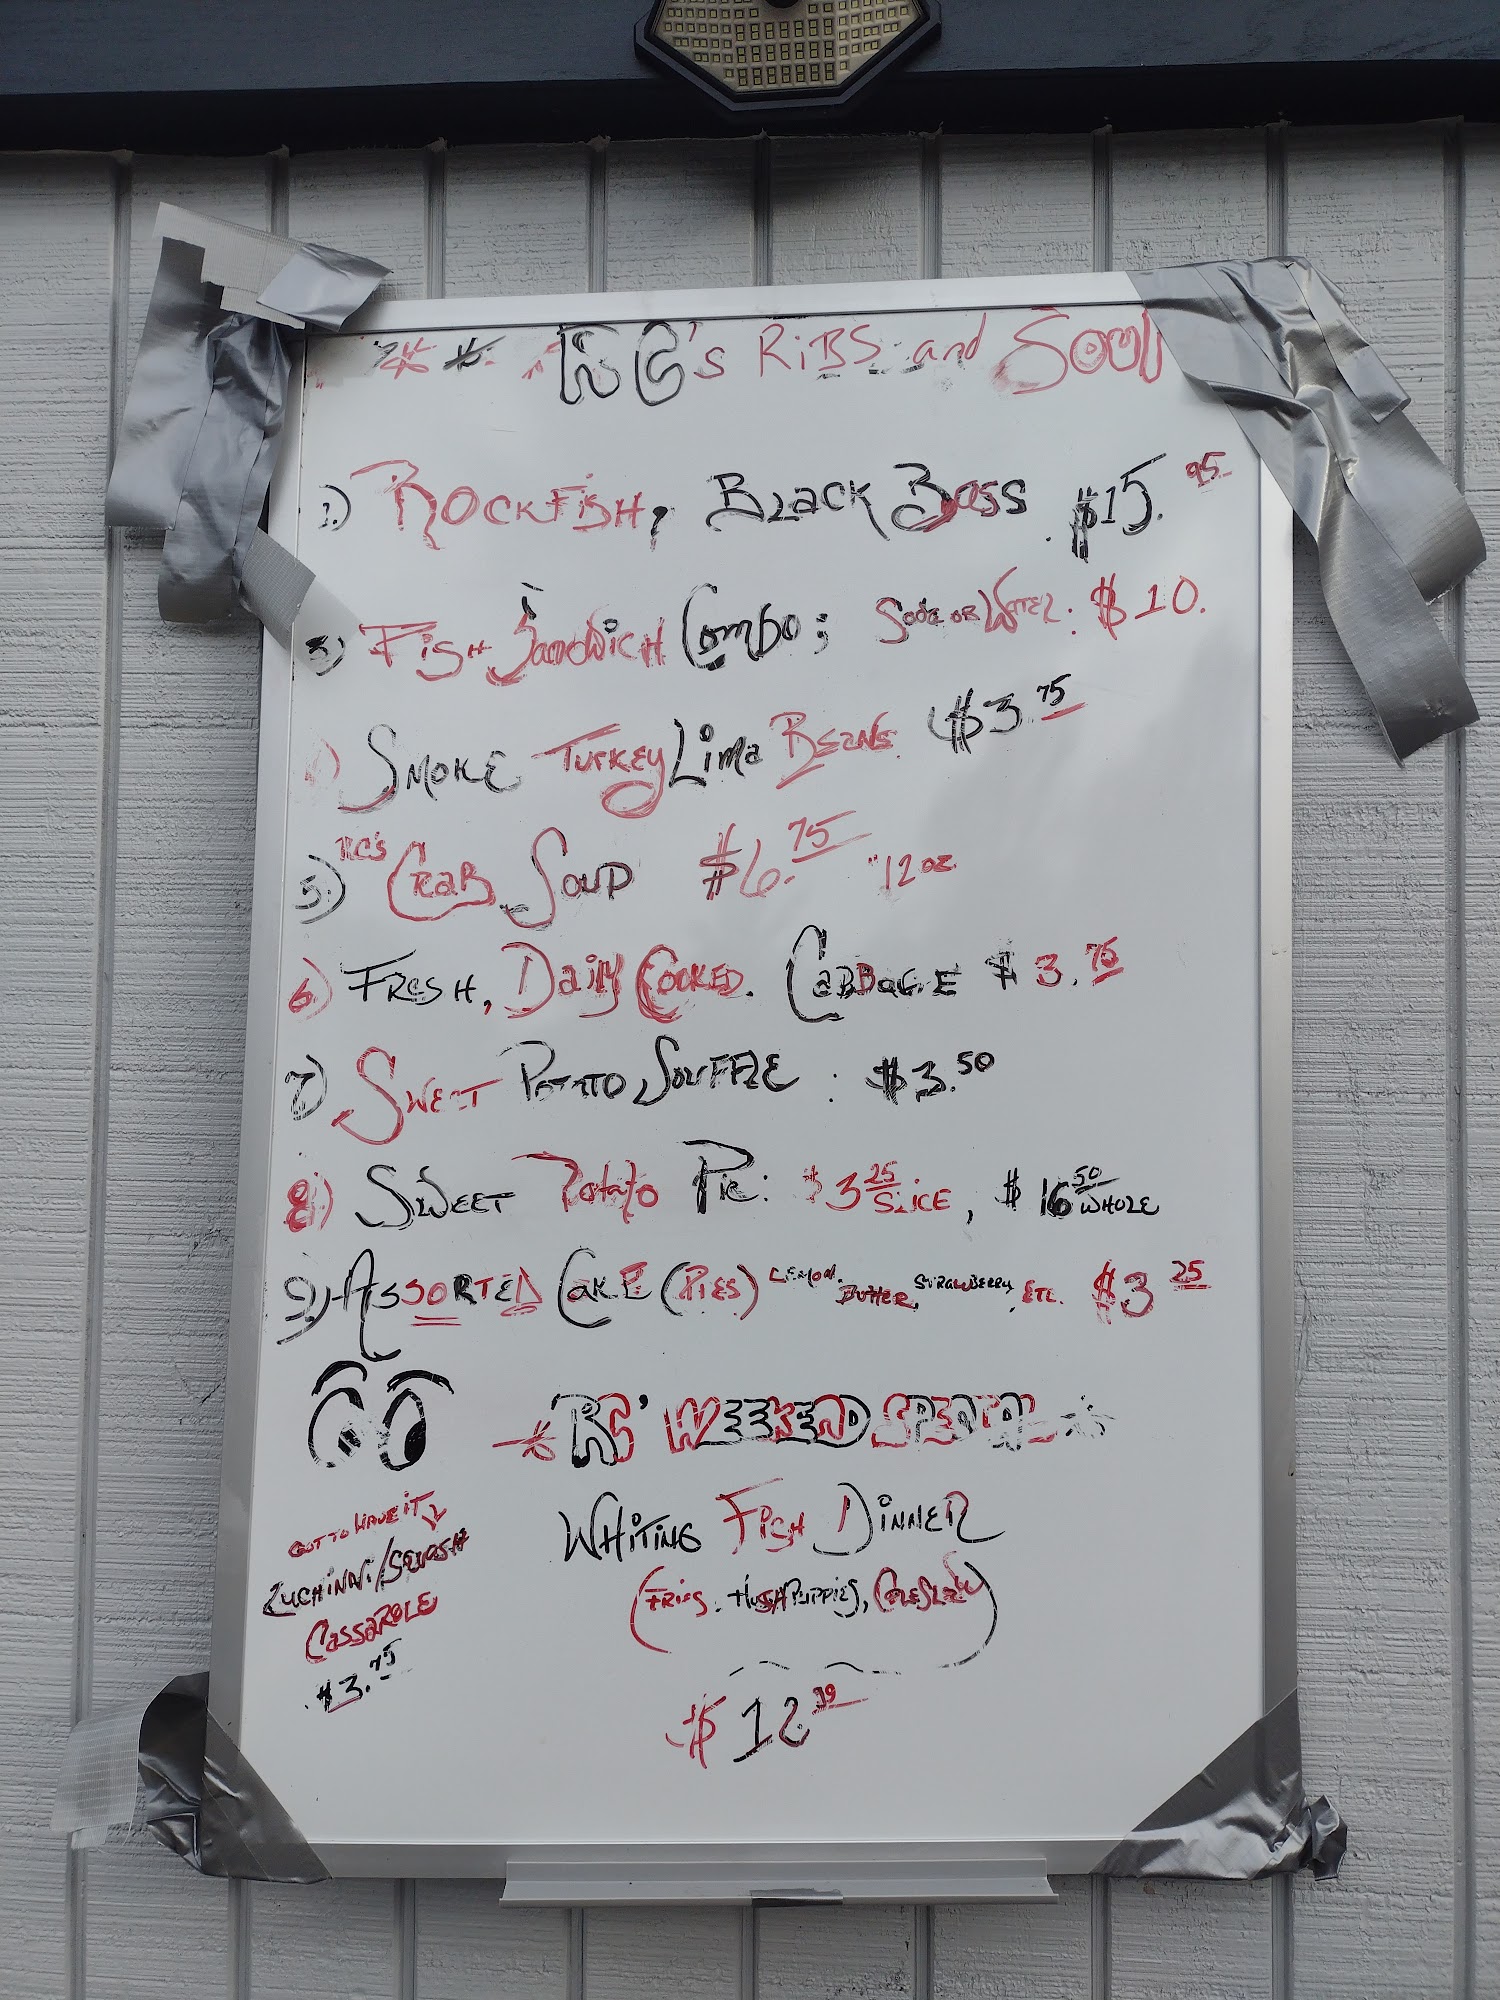 RC's RiBS and Soul
1.) ROCKFISH, BLACK BASS $15.95
3) FiSH SandWiCH Combo; Soda or Water: $10.
4) SMOKE TURKEY Lima BEANS $3.75
5) RC'S CRAB SOUP $6.75 12 oz
6) FRESH, Daily COOKED. CABBAGE $3.75
7) SWEET POTATO SOUFFLE : $3.50
8) SWEET Potato PIE: $3 25 SLICE, $16 50 WHOLE
9) ASSORTED CAKE (PIES) LEMON, BUTTER, STRAWBERRY, ETC. $3 25
* RC' WEEKEND SPECIAL
WHiTiNG FISH DiNNER
(FRIES, HUSHPUPPIES, COLESLAW)
$12 39
GOT TO HAVE iT
ZUCHiNNi/SQUASH
CASSAROLE
$3.75